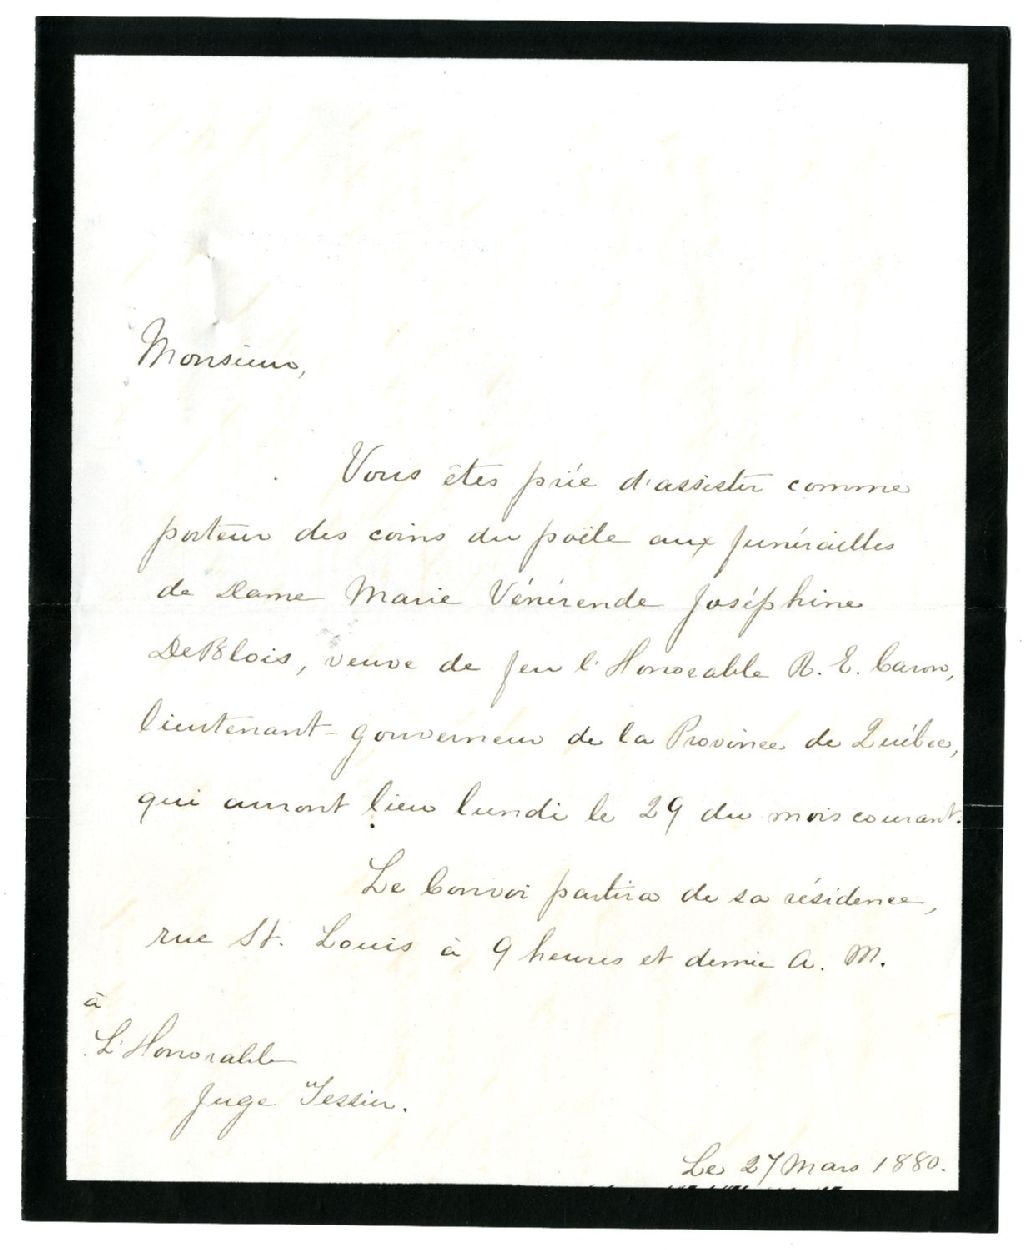 Monsieur,
Vous êtes prié d'assister comme
porteur des coins du poële aux funérailles
de Dame Marie Vénérende Joséphine
DeBlois, veuve de feu l'Honorable R. E. Caron,
lieutenant-gouverneur de la Province de Québec,
qui auront lieu lundi le 29 du mois courant.
Le Convoi partira de sa résidence,
rue St. Louis à 9 heures et demie A. M.
à
L'Honorable
Juge Tessier.
Le 27 Mars 1880.